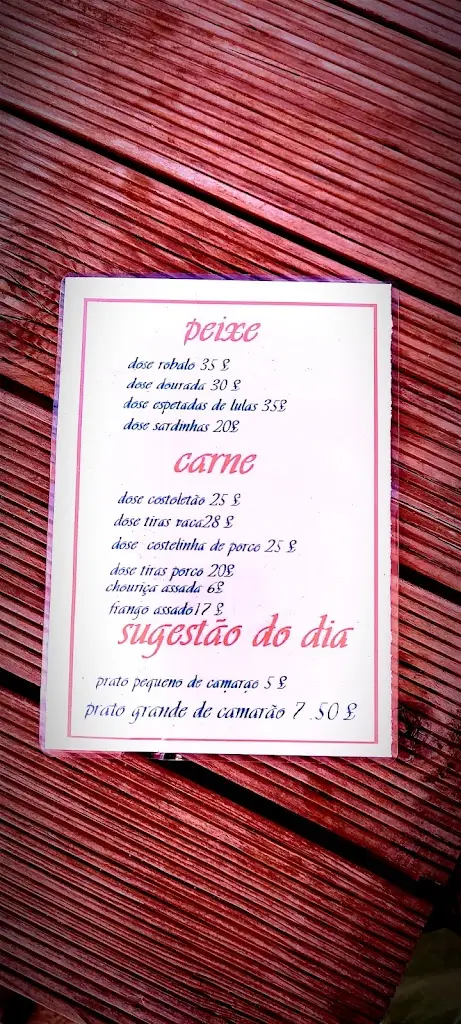 peixe
dose robalo 35 £
dose dourada 30 £
dose espetadas de lulas 35£
dose sardinhas 20£
carne
dose costoletão 25 £
dose tiras vaca28 £
dose costelinha de porco 25 £
dose tiras porco 20£
chouriça assada 6£
frango assado17 £
sugestão do dia
prato pequeno de camarao 5 £
prato grande de camarão 7 .50 £